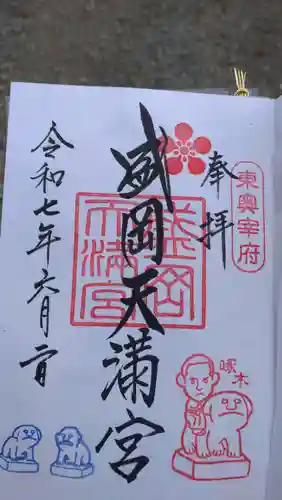 東奥宰府
奉拝
盛岡天満宮
盛岡天満宮
令和七年六月二日
啄木